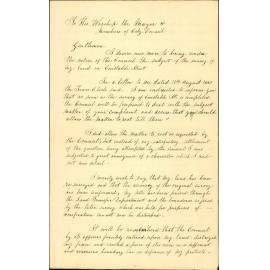 To His Worship the Mayor &
Members of City Council
Gentlemen
I desire once more to bring under
the notice of the Council the subject of the survey of
my land in Constable Street
In a letter to me dated 10th August
the Town Clerk said. I am instructed to inform you
that as soon as the survey of Constable St is completed
the Council will be prepared to deal with the subject
matter of your complaint and desires that you should
allow the matter to rest till then"
I did allow the matter to rest as requested by
the Council, but instead of any satisfactory settlement
of the question being attempted by the Council I was
subjected to great annoyance of a character which I need
not now detail.
I merely wish to say that my land has been
re-surveyed and that the accuracy of the original survey
has been confirmed, my title has been passed through the
Land Transfer Department and the boundaries as fixed
by the later survey which was made for purposes of
verification cannot now be disturbed.
It will be remembered that the Council
by its officers forcibly entered upon my land, destroyed
my fence and erected a fence of its own on a different
and erroneous boundary line in defiance of my protests.